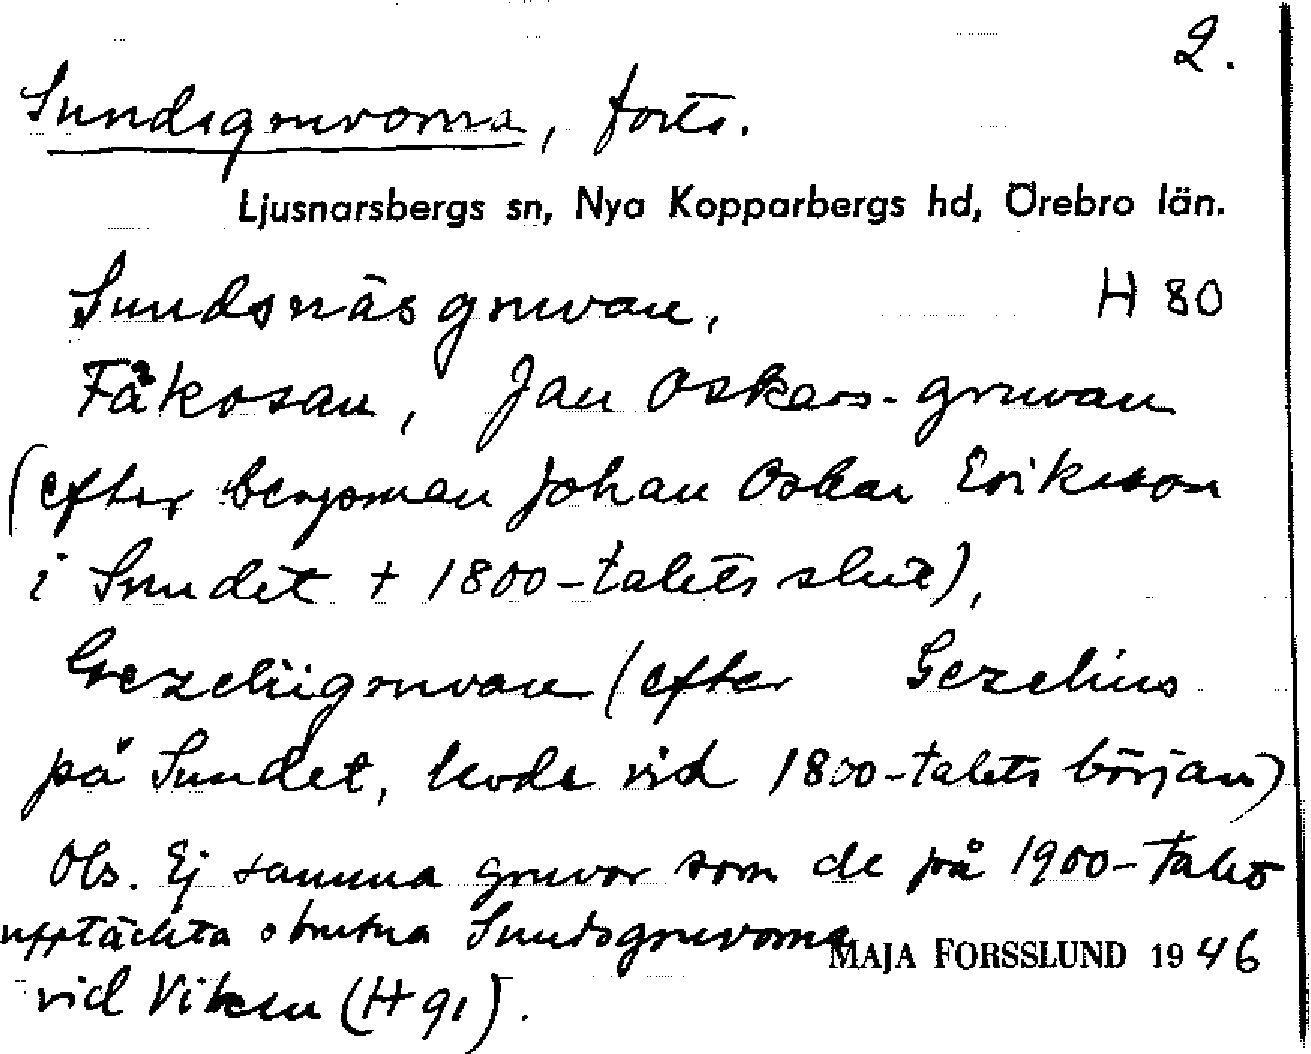 2.
Sundsgruvorna, forts.
Ljusnarsbergs sn, Nya Kopparbergs hd, Örebro län.
Sundsnäsgruvan, H 80
Fåkosan, Jan Oskars-gruvan
(efter bergsman Johan Oskar Eriksson
i Sundet + 1800-talets slut),
Gezeliigruvan (efter Gezelius
på Sundet, levde vid 1800-talets början)
Obs. Ej samma gruvor som de på 1900-talet
upptäckta o brutna Sundsgruvorna
MAJA FORSSLUND 1946
vid Viken (H 91).